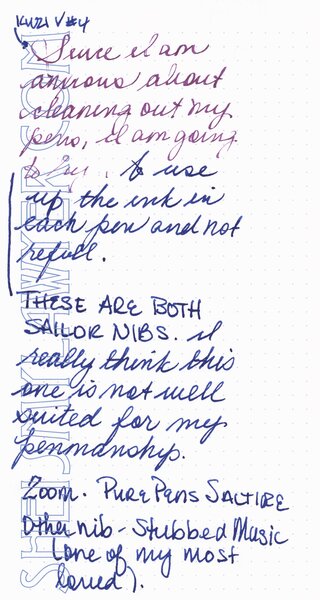 KUZU V#4
Since I am
anxious about
cleaning out my
pens, I am going
to try.. to use
up the ink in
each pen and not
refill.
THESE ARE BOTH
SAILOR NIBS. I
really think this
one is not well
suited for my
penmanship.
Zoom. PURE PENS SALTIRE
Other nib - Stubbed Music
(one of my most
loved).